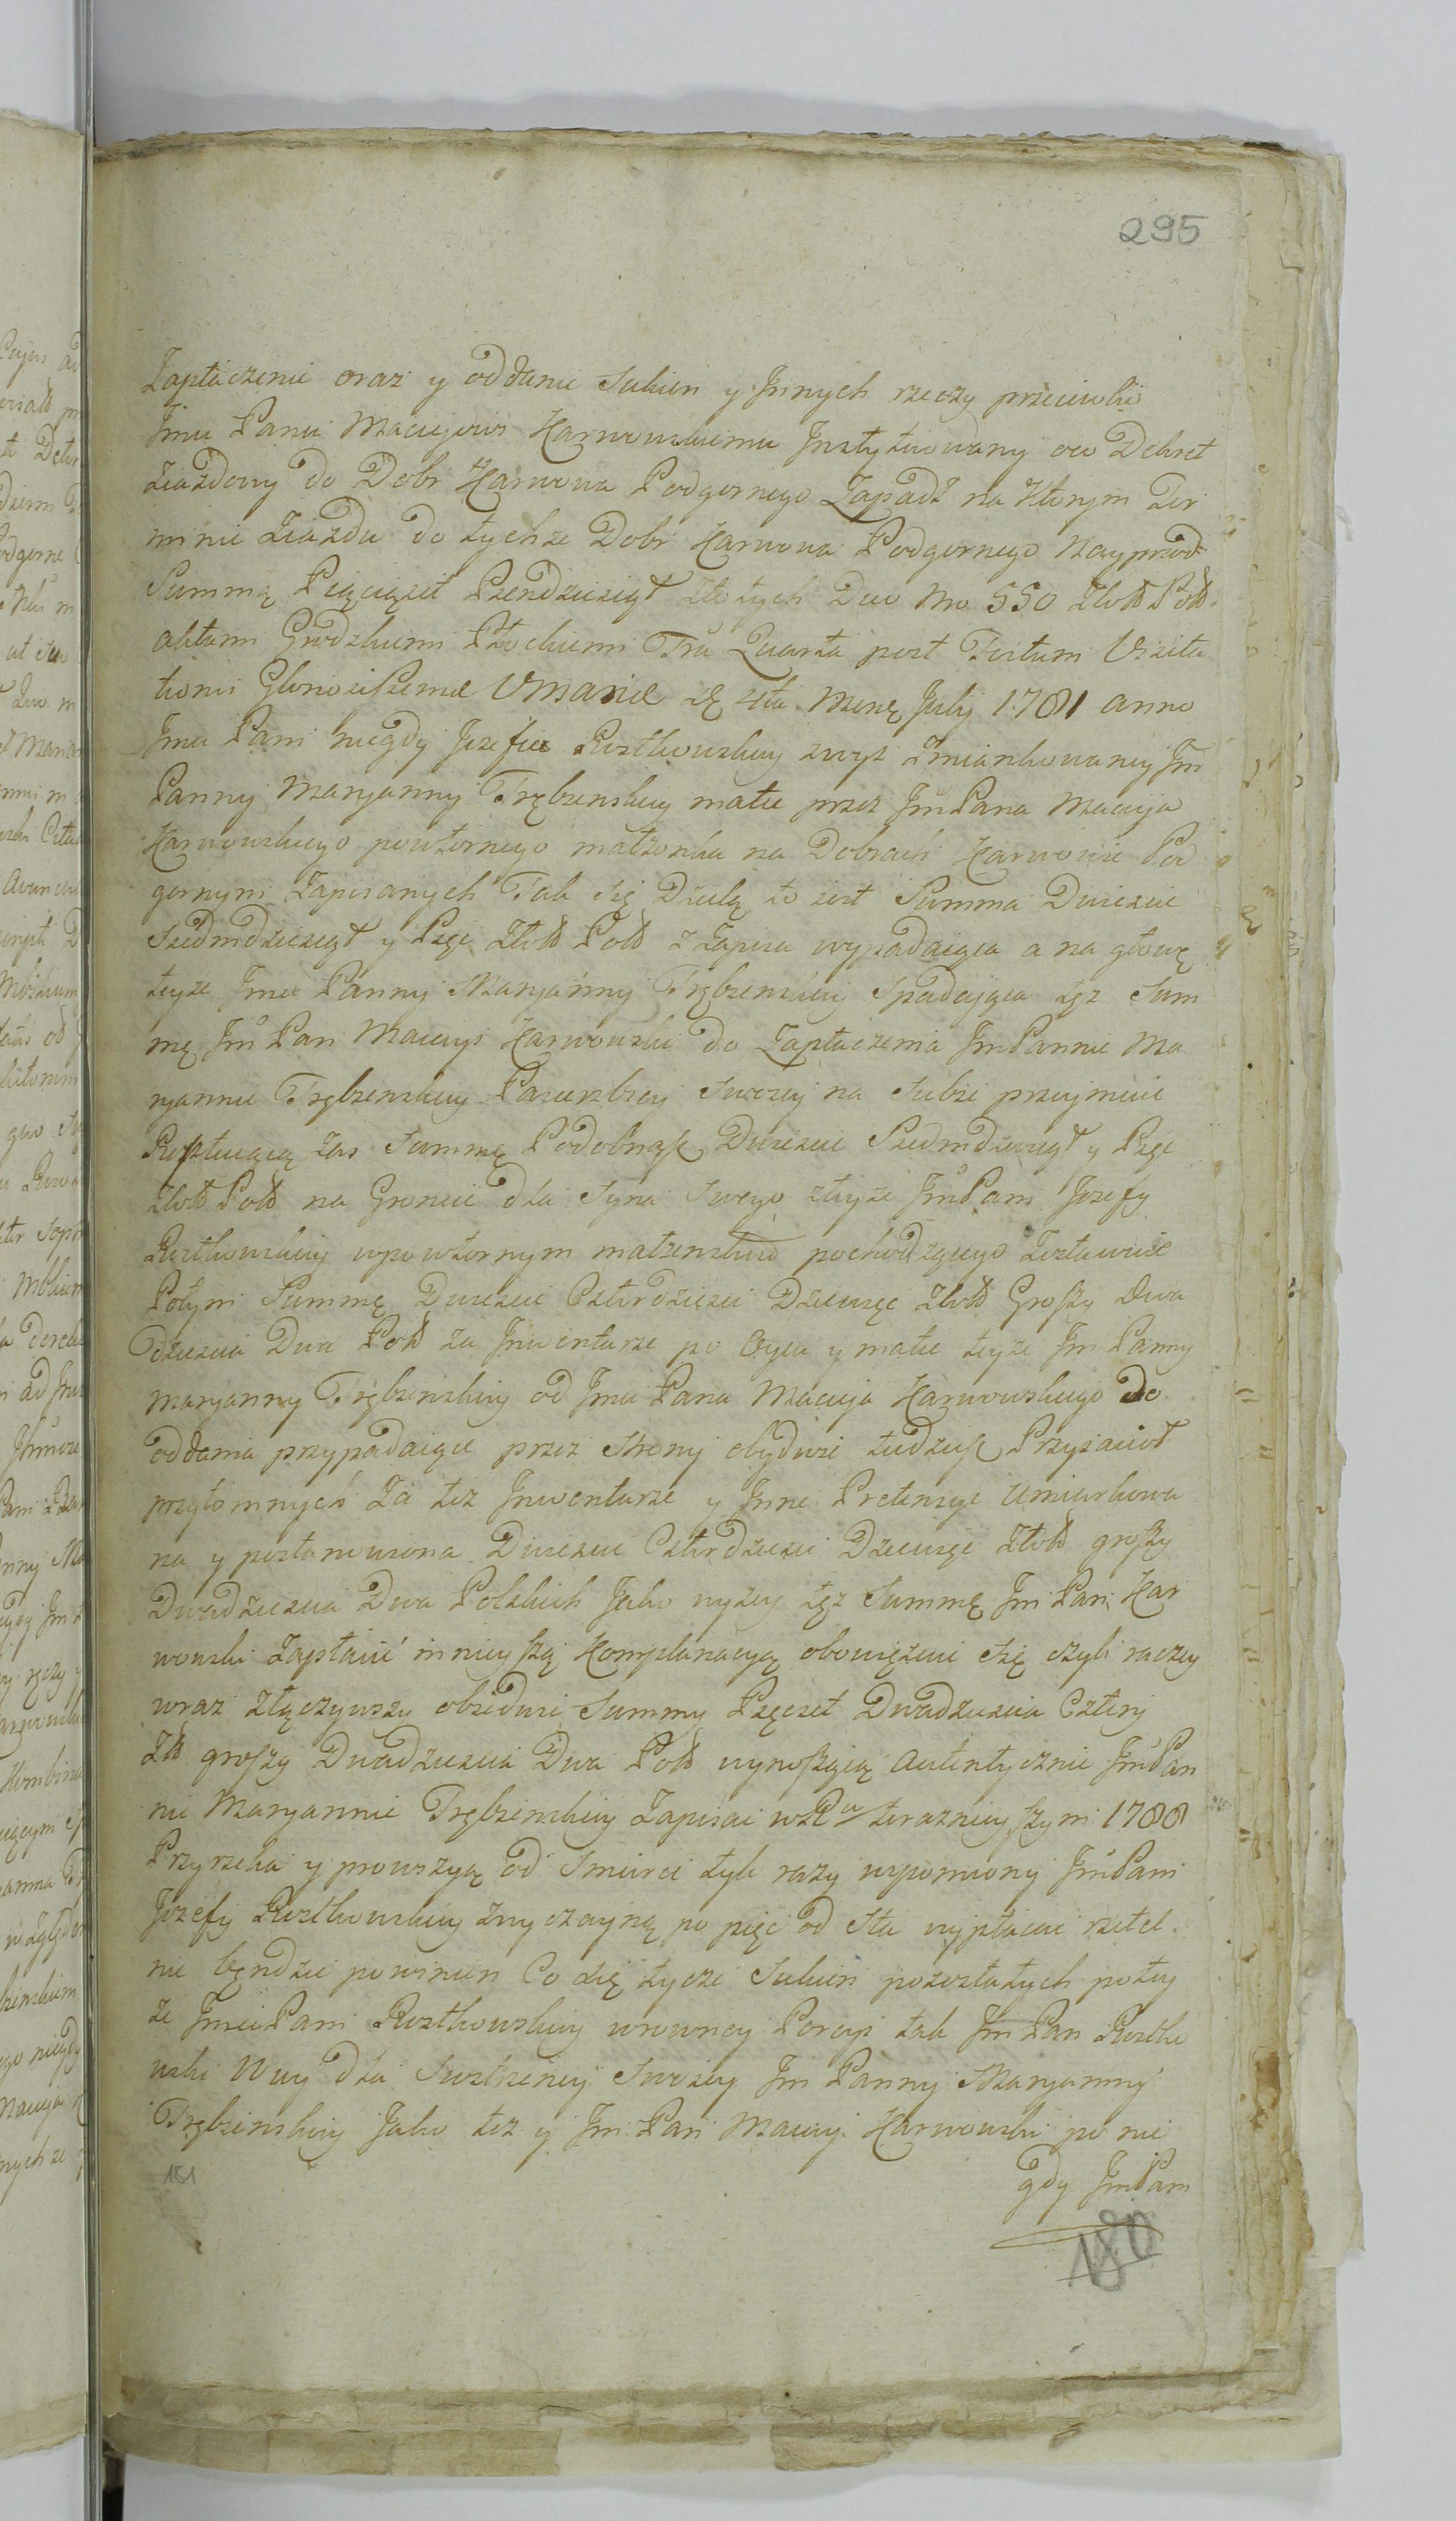 295
Zapłaczenie oraz y oddanie Sukien y Jnnych rzeczy przeciwko
Jmu Panu Maciejowi Karwowskiemu Jnstytuowany oco Dekret
Ziazdowy do Dobr Karwowa Podgornego Zapadł na Ktorym Ter
minie Ziazdu do tychze Dobr Karwowa Podgornego Nayprzod
Summą Pięcięset Piendziesiąt Złotych Duo No 550 Złott Poll.
aktami Grodzkiemi Płockiemi Fria Quarta post Festum Visita
tionis Gloriosissimæ V Mariæ 4ta Mensę Julij 1781 anno
Jmu Pani niegdy Jozefie Rostkowskiey zwyż Zmiankowaney Jm
Panny Maryanny Trębzenskiey matce przez Jm Pana Macieja
Karwowskiego powtornego małżonka na Dobrach Karwowie Pod
gornym Zapisanych Tak się Dzielą to iest Summa Dwiescie
Siedmdziesiąt y Pięc Złott Poll z Zapisu wypadaiąca a na głowę
teyze Jmci Panny Maryanny Trębzenskiey Spadaiąca tęz Sum
mę Jm Pan Maciey Karwowski do Zapłaczenia Jm Pannie Ma
ryannie Trębzenskiey Pasierbicy Swoiey na Siebie przeymuie
Resztuiącą zas Summę Podobnąsz Dwiescie Siedmdziesiąt y Pięc
Złott Poll na Groncie dla Syna Swego zteyże Jm Pani Jozefy
Rostkowskiey wpowtornym małzenstwie pochodzącego Zostawuie
Potym Summę Dwiescie Czterdziesci Dziewięc Złott Groszy dwa
dziescia Dwa Poll za Jnwentarze po Oycu y matce teyze Jm Panny
Maryanny Trębzenskiey od Jmci Pana Macieja Karwowskiego do
oddania przypadaiące przez Strony obydwie tudziesz Przyiacioł
przytomnych Za tez Jnwentarze y Jnne Pretensye Umiarkowa
na y postanowiona Dwiescie Czterdziesci Dziewięc Złott groszy
Dwadziescia Dwa Polskich Jako wyzey tęz Summę Jm Pan Kar
wowski Zapłacić mnieyszą Komplanacyą obowięzuie się czyli raczey
wraz złączywszy obiedwie Summy Pięcset Dwadziescia Cztery
Zll groszy Dwadziescia Dwa Poll wynoszącą autentycznie Jm Pan
nie Maryannie Trębzenskiey Zapisać w Ru teraznieyszym 1788
Przyrzeka y prowizyą od Smierci tyle razy wpomniony Jm Pani
Jozefy Rostkowskiey zwyczayną po pięc od Sta wypłacać rzetel
nie będzie powinien Co się tycze Sukien pozostałych po tey
ze Jmci Pani Rostkowskiey wrowney Porcyi tak Jm Pan Rostko
wski Wuy dla Siestrzenicy Swoiey Jm Panny Maryanny
Trębzenskiey Jako tez y Jm Pan Maciey Karwowski po nie
gdy Jm Pani
181
180